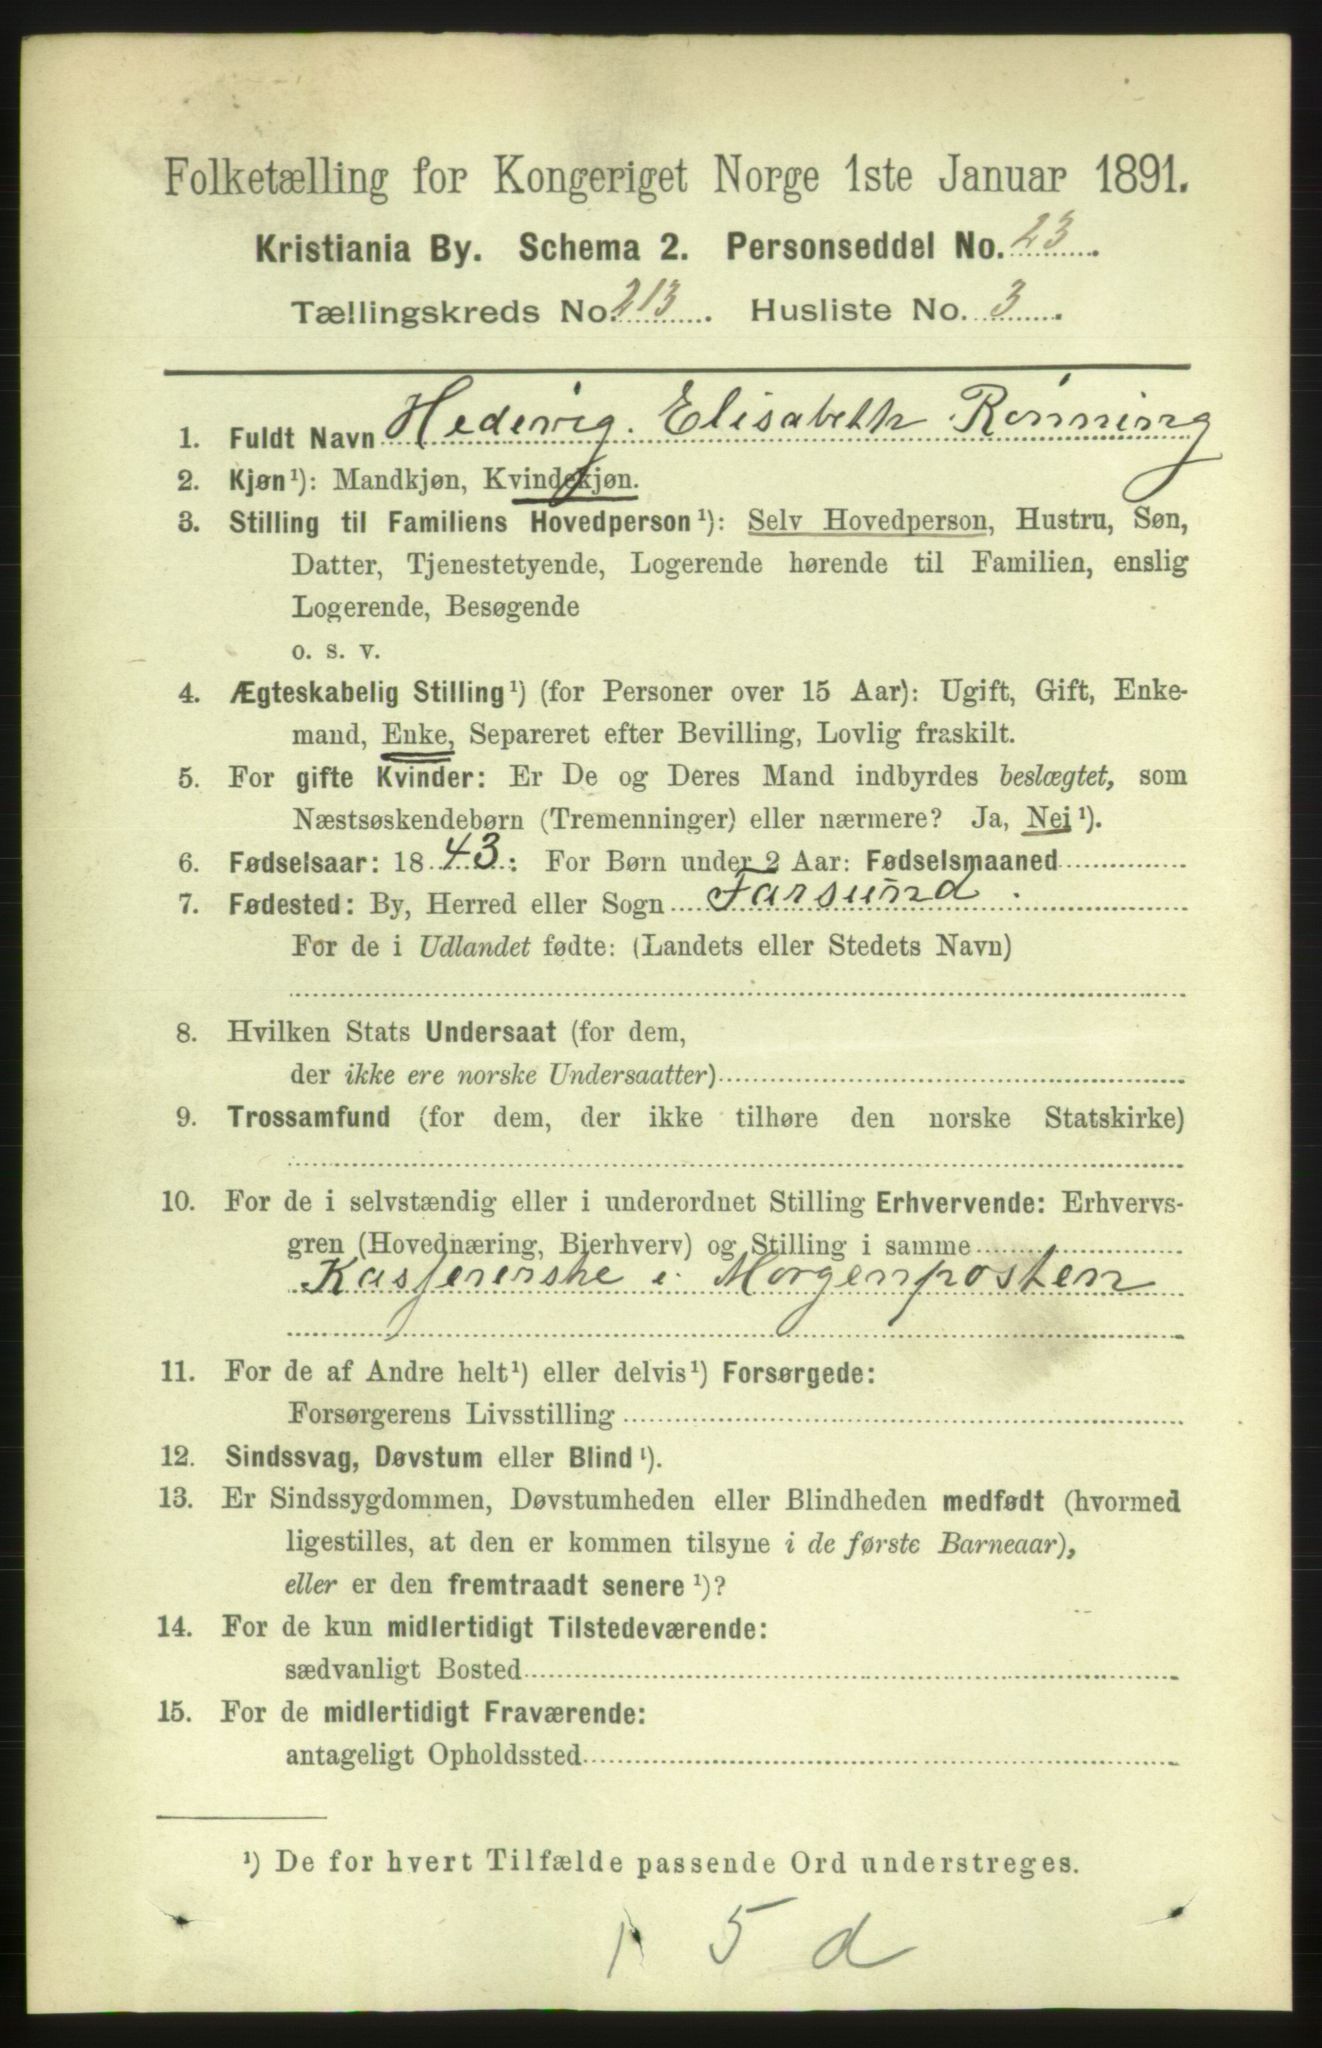 Folketælling for Kongeriget Norge 1ste Januar 1891.
Kristiania By. Schema 2. Personseddel No. 23.
Tællingskreds No. 213. Husliste No. 3.
1. Fuldt Navn Hedevig. Elisabeth Rønning
2. Kjøn¹): Mandkjøn, Kvindekjøn.
3. Stilling til Familiens Hovedperson¹): Selv Hovedperson, Hustru, Søn,
Datter, Tjenestetyende, Logerende hørende til Familien, enslig
Logerende, Besøgende
o. s. v.
4. Ægteskabelig Stilling¹) (for Personer over 15 Aar): Ugift, Gift, Enke-
mand, Enke, Separeret efter Bevilling, Lovlig fraskilt.
5. For gifte Kvinder: Er De og Deres Mand indbyrdes beslægtet, som
Næstsøskendebørn (Tremenninger) eller nærmere? Ja, Nei¹).
6. Fødselsaar: 1843: For Børn under 2 Aar: Fødselsmaaned
7. Fødested: By, Herred eller Sogn Farsund.
For de i Udlandet fødte: (Landets eller Stedets Navn)
8. Hvilken Stats Undersaat (for dem,
der ikke ere norske Undersaatter)
9. Trossamfund (for dem, der ikke tilhøre den norske Statskirke)
10. For de i selvstændig eller i underordnet Stilling Erhvervende: Erhvervs-
gren (Hovednæring, Bierhverv) og Stilling i samme
Kasjererske i Morgenposten
11. For de af Andre helt¹) eller delvis¹) Forsørgede:
Forsørgerens Livsstilling
12. Sindssvag, Døvstum eller Blind¹).
13. Er Sindssygdommen, Døvstumheden eller Blindheden medfødt (hvormed
ligestilles, at den er kommen tilsyne i de første Barneaar),
eller er den fremtraadt senere¹)?
14. For de kun midlertidigt Tilstedeværende:
sædvanligt Bosted
15. For de midlertidigt Fraværende:
antageligt Opholdssted
¹) De for hvert Tilfælde passende Ord understreges.
1 5 d